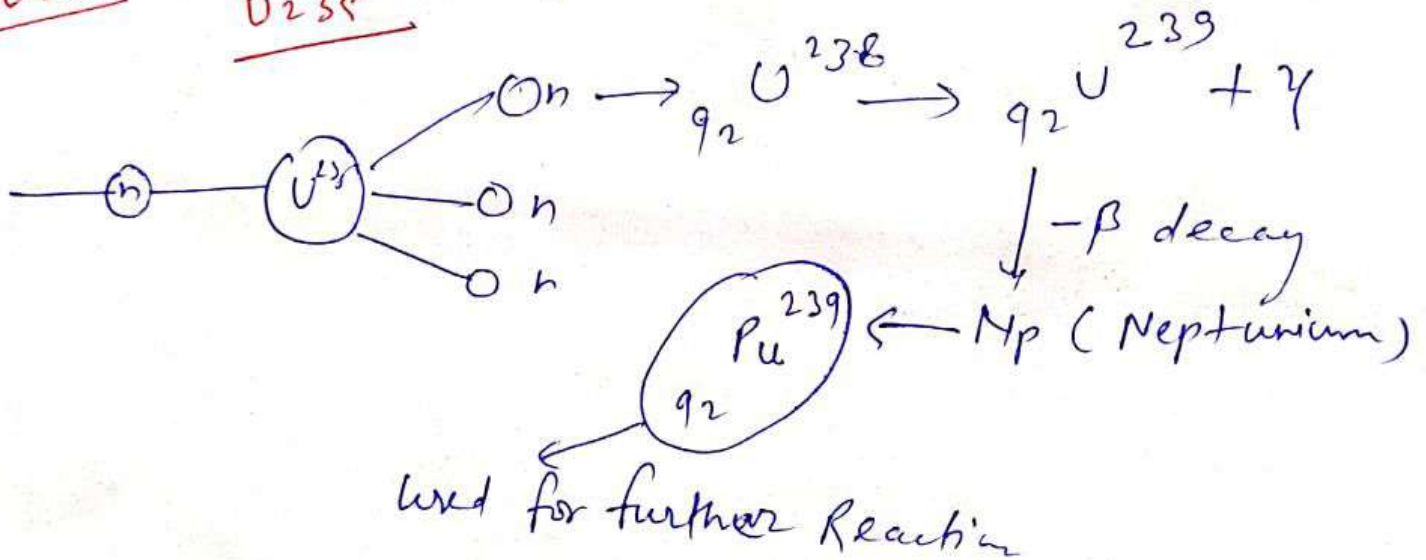 U235
n → 92 U 238 → 92 U 239 + γ
n U 235 n
n -β decay
Pu 239 92 ← Np ( Neptunium )
Used for further Reaction